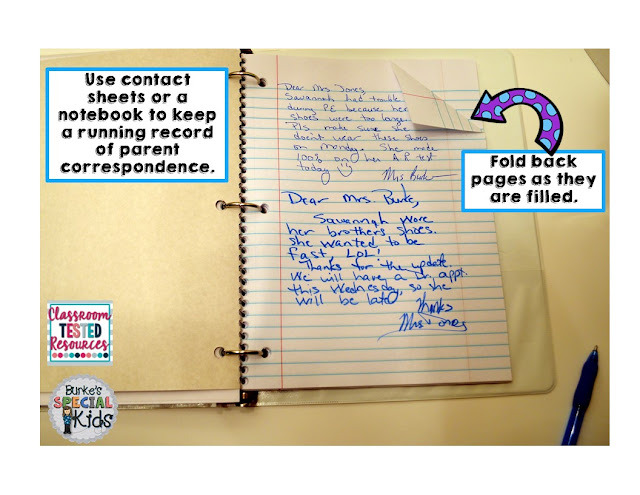 Use contact
sheets or a
notebook to keep
a running record
of parent
correspondence.
Dear Mrs Jones,
Savannah had trouble
during PE because her
shoes were too large.
Pls make sure she
doesn't wear these shoes
on Monday. She made
100% on her A.R. test
today
Mrs Burke
Fold back
pages as they
are filled.
Dear Mrs. Burke,
Savannah wore
her brothers shoes.
She wanted to be
fast, LOL!
Thanks for the update.
We will have a Dr. appt.
this Wednesday, so she
will be late.
Thanks
Mrs Jones
Classroom
TESTED
Resources
Burke's
SPECIAL
Kids